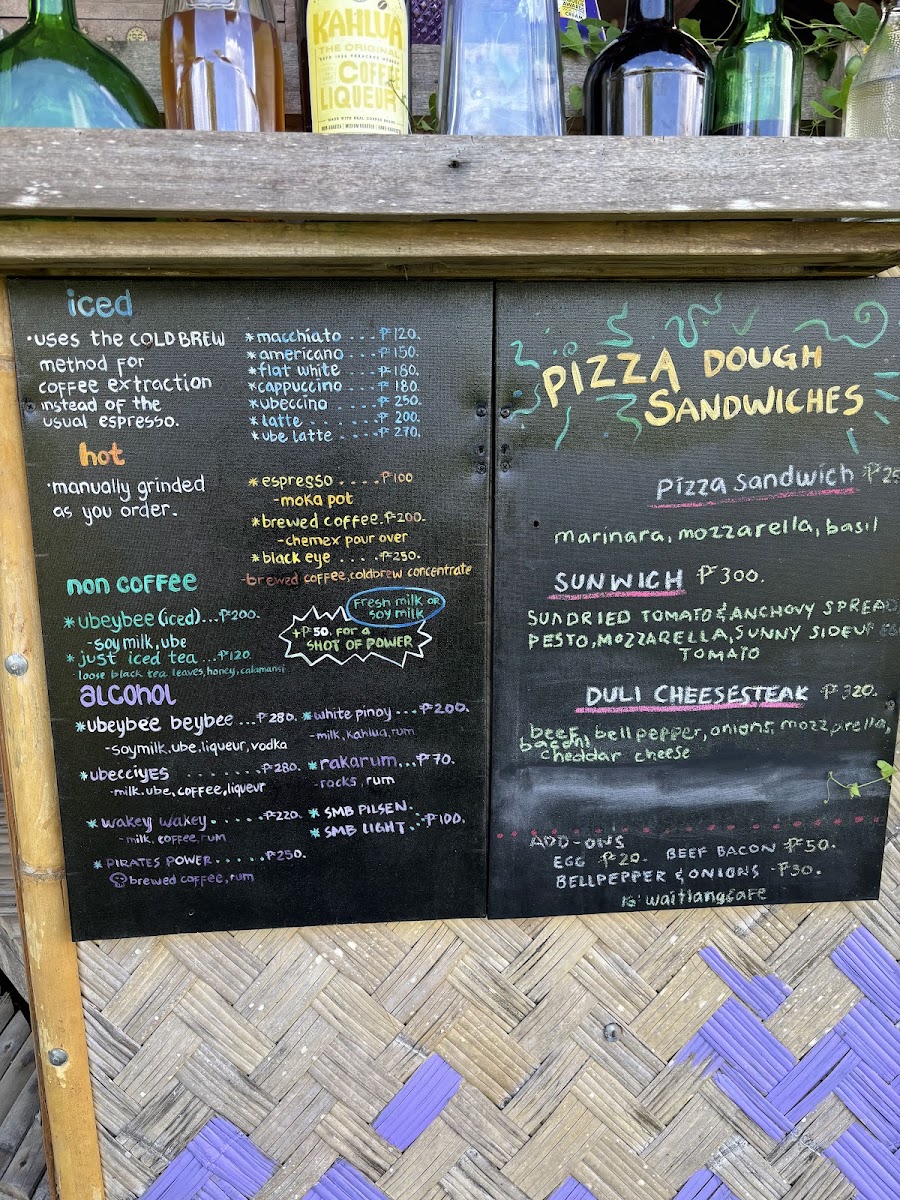 KAHLUA
THE ORIGINAL
COFFEE
LIQUEUR
CREAM
iced
·uses the COLD BREW
method for
coffee extraction
instead of the
usual espresso.
*macchiato . . . . ₱120.
*americano . . . . ₱150.
*flat white . . . . ₱180.
*cappuccino . . . ₱180.
*ubeccino . . . . . ₱250.
*latte . . . . . . ₱200.
*ube latte . . . . . ₱270.
hot
·manually grinded
as you order.
*espresso . . . . . ₱100
-moka pot
*brewed coffee. ₱200.
-chemex pour over
*black eye . . . . ₱250.
-brewed coffee, coldbrew concentrate
non coffee
*ubeybee (iced)...₱200.
-soy milk, ube
*just iced tea ...₱120.
loose black tea leaves, honey, calamansi
Fresh milk or
soy milk
+₱50. for a
SHOT OF POWER
alcohol
*ubeybee beybee ...₱280.
-soymilk, ube, liqueur, vodka
*ubecciyes . . . . . . . . ₱280.
-milk, ube, coffee, liqueur
*wakey wakey. . . . . . . ₱220.
-milk, coffee, rum
*PIRATES POWER. . . . . ₱250.
brewed coffee, rum
*white pinoy . . . ₱200.
-milk, kahlua, rum
*rakarum...₱70.
-rocks, rum
*SMB PILSEN.
*SMB LIGHT . : . ₱100.
PIZZA DOUGH
SANDWICHES
Pizza Sandwich ₱25
marinara, mozzarella, basil
SUNWICH ₱300.
SUNDRIED TOMATO & ANCHOVY SPREAD
PESTO, MOZZARELLA, SUNNY SIDEUP
TOMATO
DULI CHEESESTEAK ₱320.
beef, bell pepper, onions, mozzarella,
bacon,
cheddar cheese
ADD-ONS
EGG ₱20. BEEF BACON ₱50.
BELLPEPPER & ONIONS ₱30.
IG: waitlangcafe